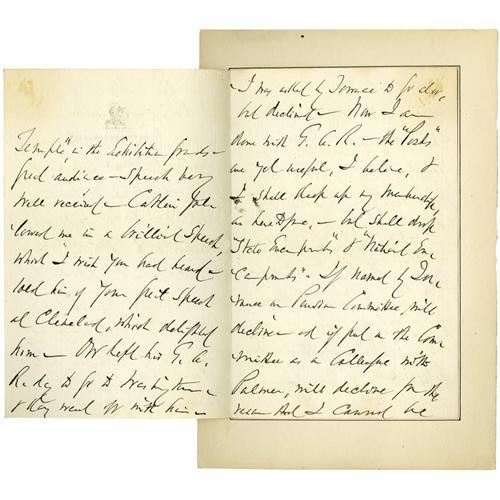 Temple", in the Exhibition grounds -
great audience - Speech very
well received - Catlin fol-
lowed me in a brilliant Speech,
which I wish you had heard -
told him of your great Speech
at Cleveland, which delighted
him - Orr left his G. A.
R. day to go to Washington -
& they went off with him -
I was asked by Torrance to go also,
but declined - Now I am
done with G. A. R. - the "Posts"
are yet useful, I believe, &
I shall keep up my Membership
as heretofore, - but shall drop
"State Encampments" & "National En-
campments" - If named by Tor-
rance on Pension Committee, will
decline - and if put on the Com-
mittee as a Colleague with
Palmer, will decline for the
reason that I cannot be